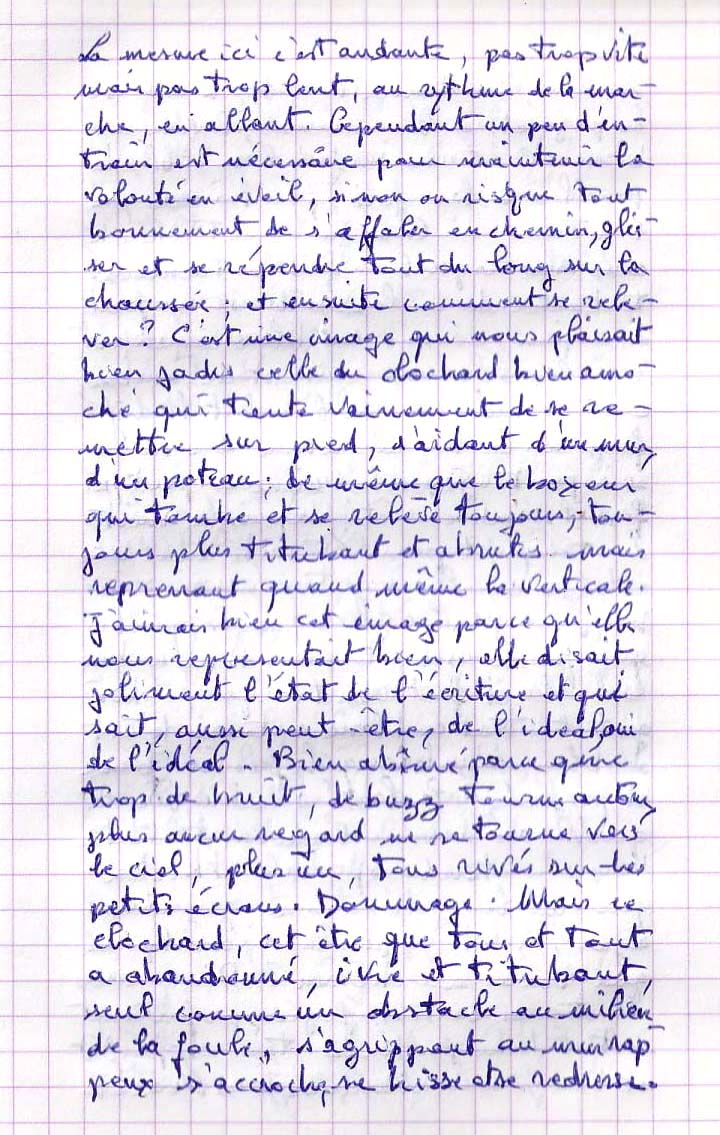 La mesure ici c'est andante, pas trop vite
mais pas trop lent, au rythme de la mar-
che, en allant. Cependant un peu d'en-
train est nécessaire pour maintenir la
volonté en éveil, sinon on risque tout
bonnement de s'affaler en chemin, glis-
ser et se répendre tout du long sur la
chaussée ; et ensuite comment se rele-
ver ? C'est une image qui nous plaisait
bien jadis celle du clochard bien amo-
ché qui tente vainement de se re-
mettre sur pied, s'aidant d'un mur,
d'un poteau ; de même que le boxeur
qui tombe et se relève toujours, tou-
jours plus titubant et abruti mais
reprenant quand même la verticale.
J'aimais bien cet image parce qu'elle
nous représentait bien, elle disait
joliment l'état de l'écriture et qui
sait, aussi peut-être, de l'idéal, oui
de l'idéal. Bien abîmé parce que
trop de bruit, de buzz tourne autour,
plus aucun regard ne se tourne vers
le ciel, plus un, tous rivés sur les
petits écrans. Dommage. Mais ce
clochard, cet être que tous et tout
a abandonné, ivre et titubant,
seul comme un obstacle au milieu
de la foule, s'agrippant au mur rap-
peux s'accroche, se hisse et se redresse.